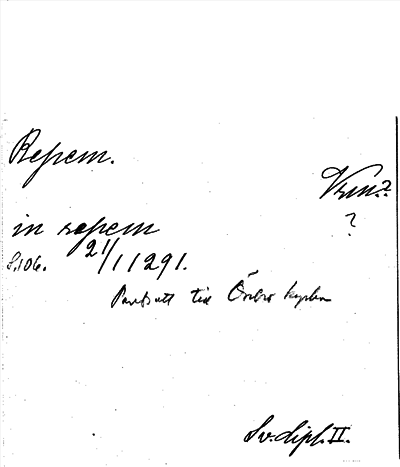 Repem.
Vrm??
in repem
S. 106. 21/1 1291.
till Örebro kyrka
Sv. dipl. II.